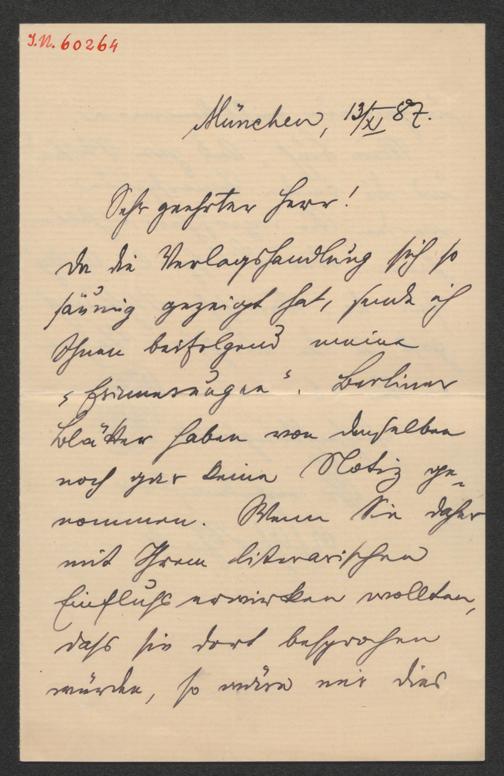 I.N. 60264
München, 13/XI 87.
Sehr geehrter Herr!
Da die Verlagshandlung sich so
säumig gezeigt hat, sende ich
Ihnen beifolgend meine
„Erinnerungen“. Berliner
Blätter haben von denselben
noch gar keine Notiz ge-
nommen. Wenn Sie daher
mit Ihrem literarischen
Einfluß erwirken wollten,
dass sie dort besprochen
würden, so wäre mir dies